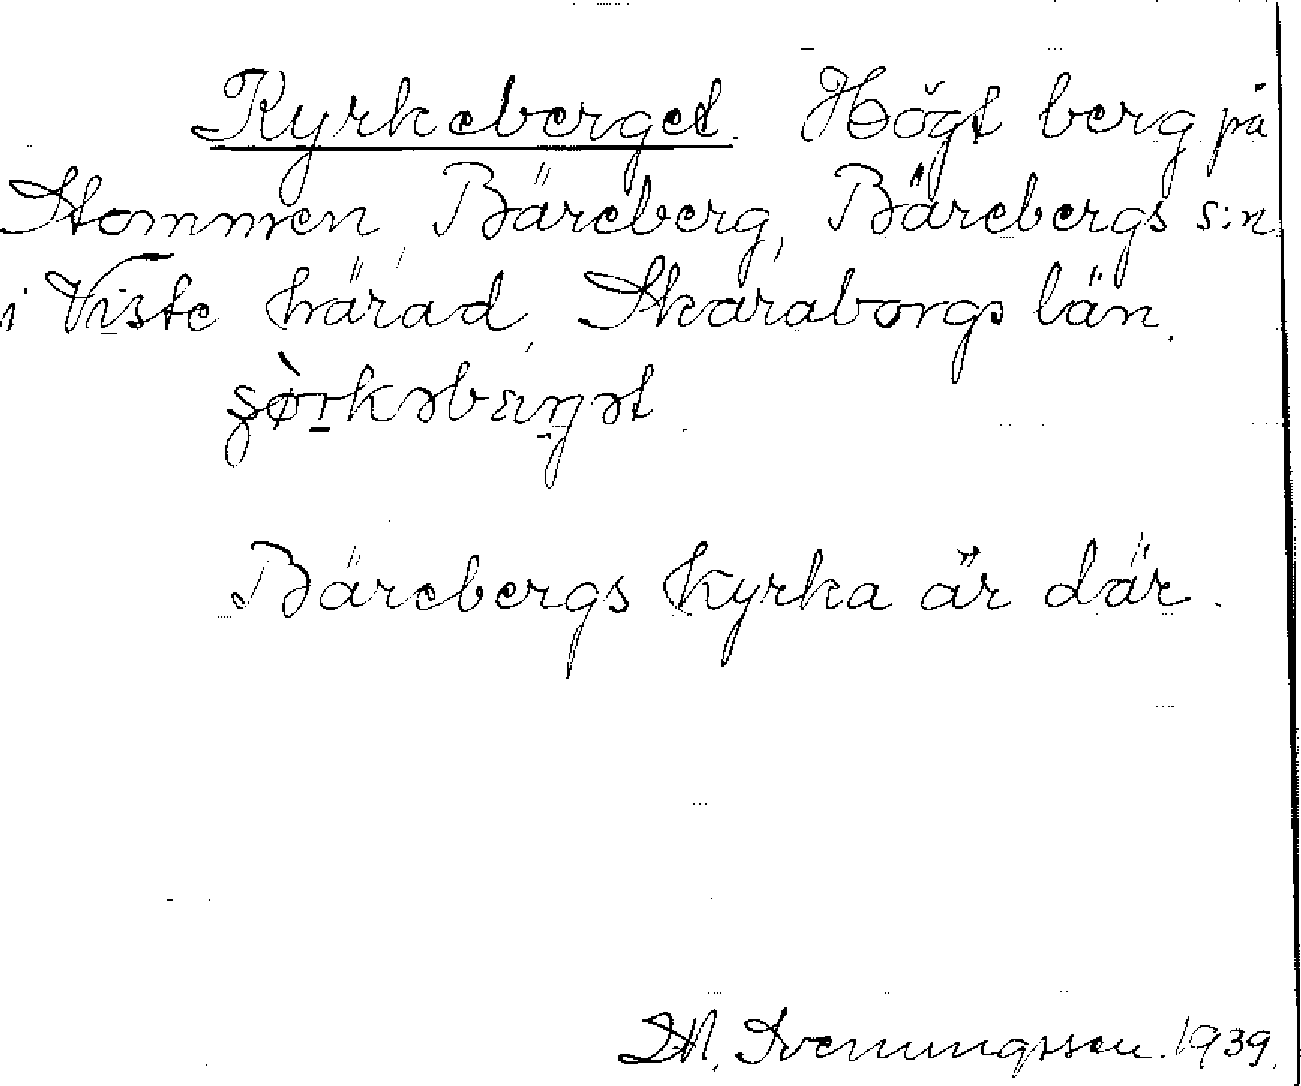 Kyrkeberget. Högt berg på
Stommen, Bäreberg, Bärebergs s:n
i Viste härad, Skaraborgs län.
Bärebergs kyrka är där.
M. Svenningsson. 1939.